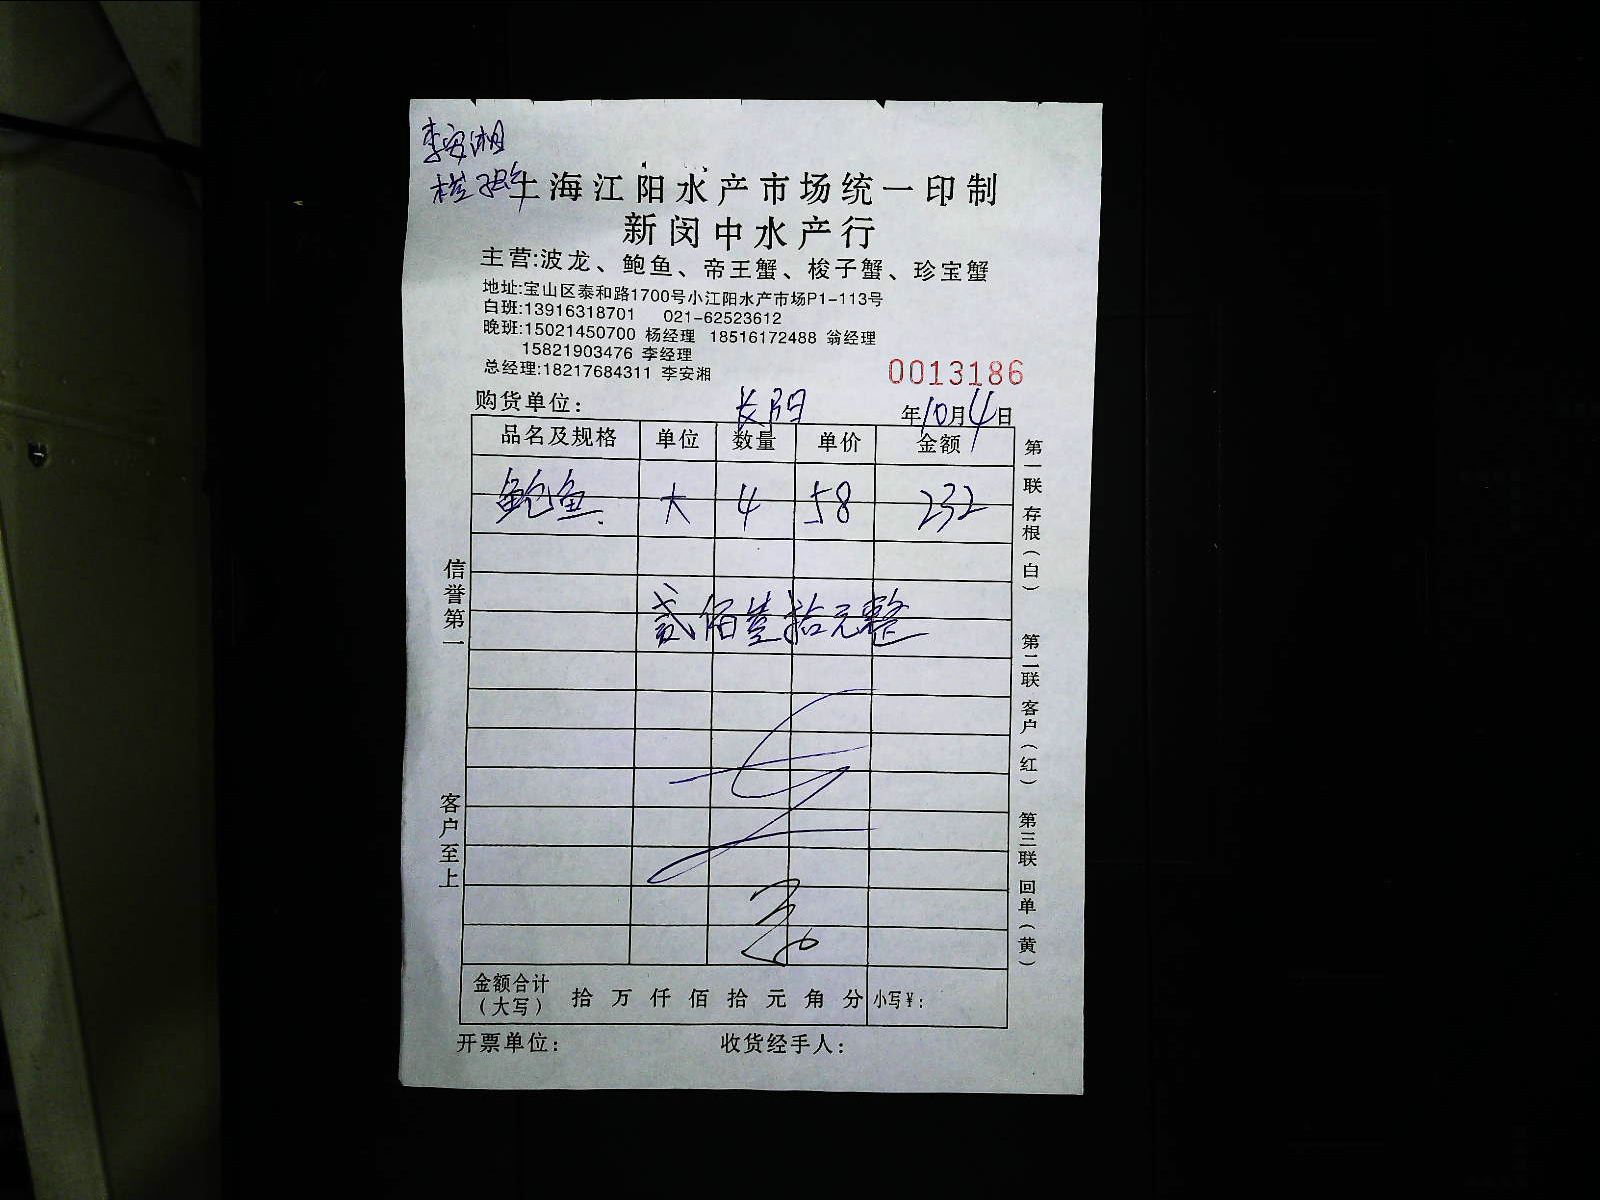 李安湘
上海江阳水产市场统一印制
新闵中水产行
主营:波龙、鲍鱼、帝王蟹、梭子蟹、珍宝蟹
地址:宝山区泰和路1700号小江阳水产市场P1-113号
白班:13916318701 021-62523612
晚班:15021450700 杨经理 18516172488 翁经理
15821903476 李经理
总经理:18217684311 李安湘
0013186
购货单位: 长阳 年10月4日
品名及规格 单位 数量 单价 金额
鲍鱼 大 4 58 232
贰佰叁拾元整
金额合计(大写) 拾 万 仟 佰 拾 元 角 分 小写¥:
开票单位: 收货经手人:
信誉第一 客户至上
第一联 存根(白) 第二联 客户(红) 第三联 回单(黄)